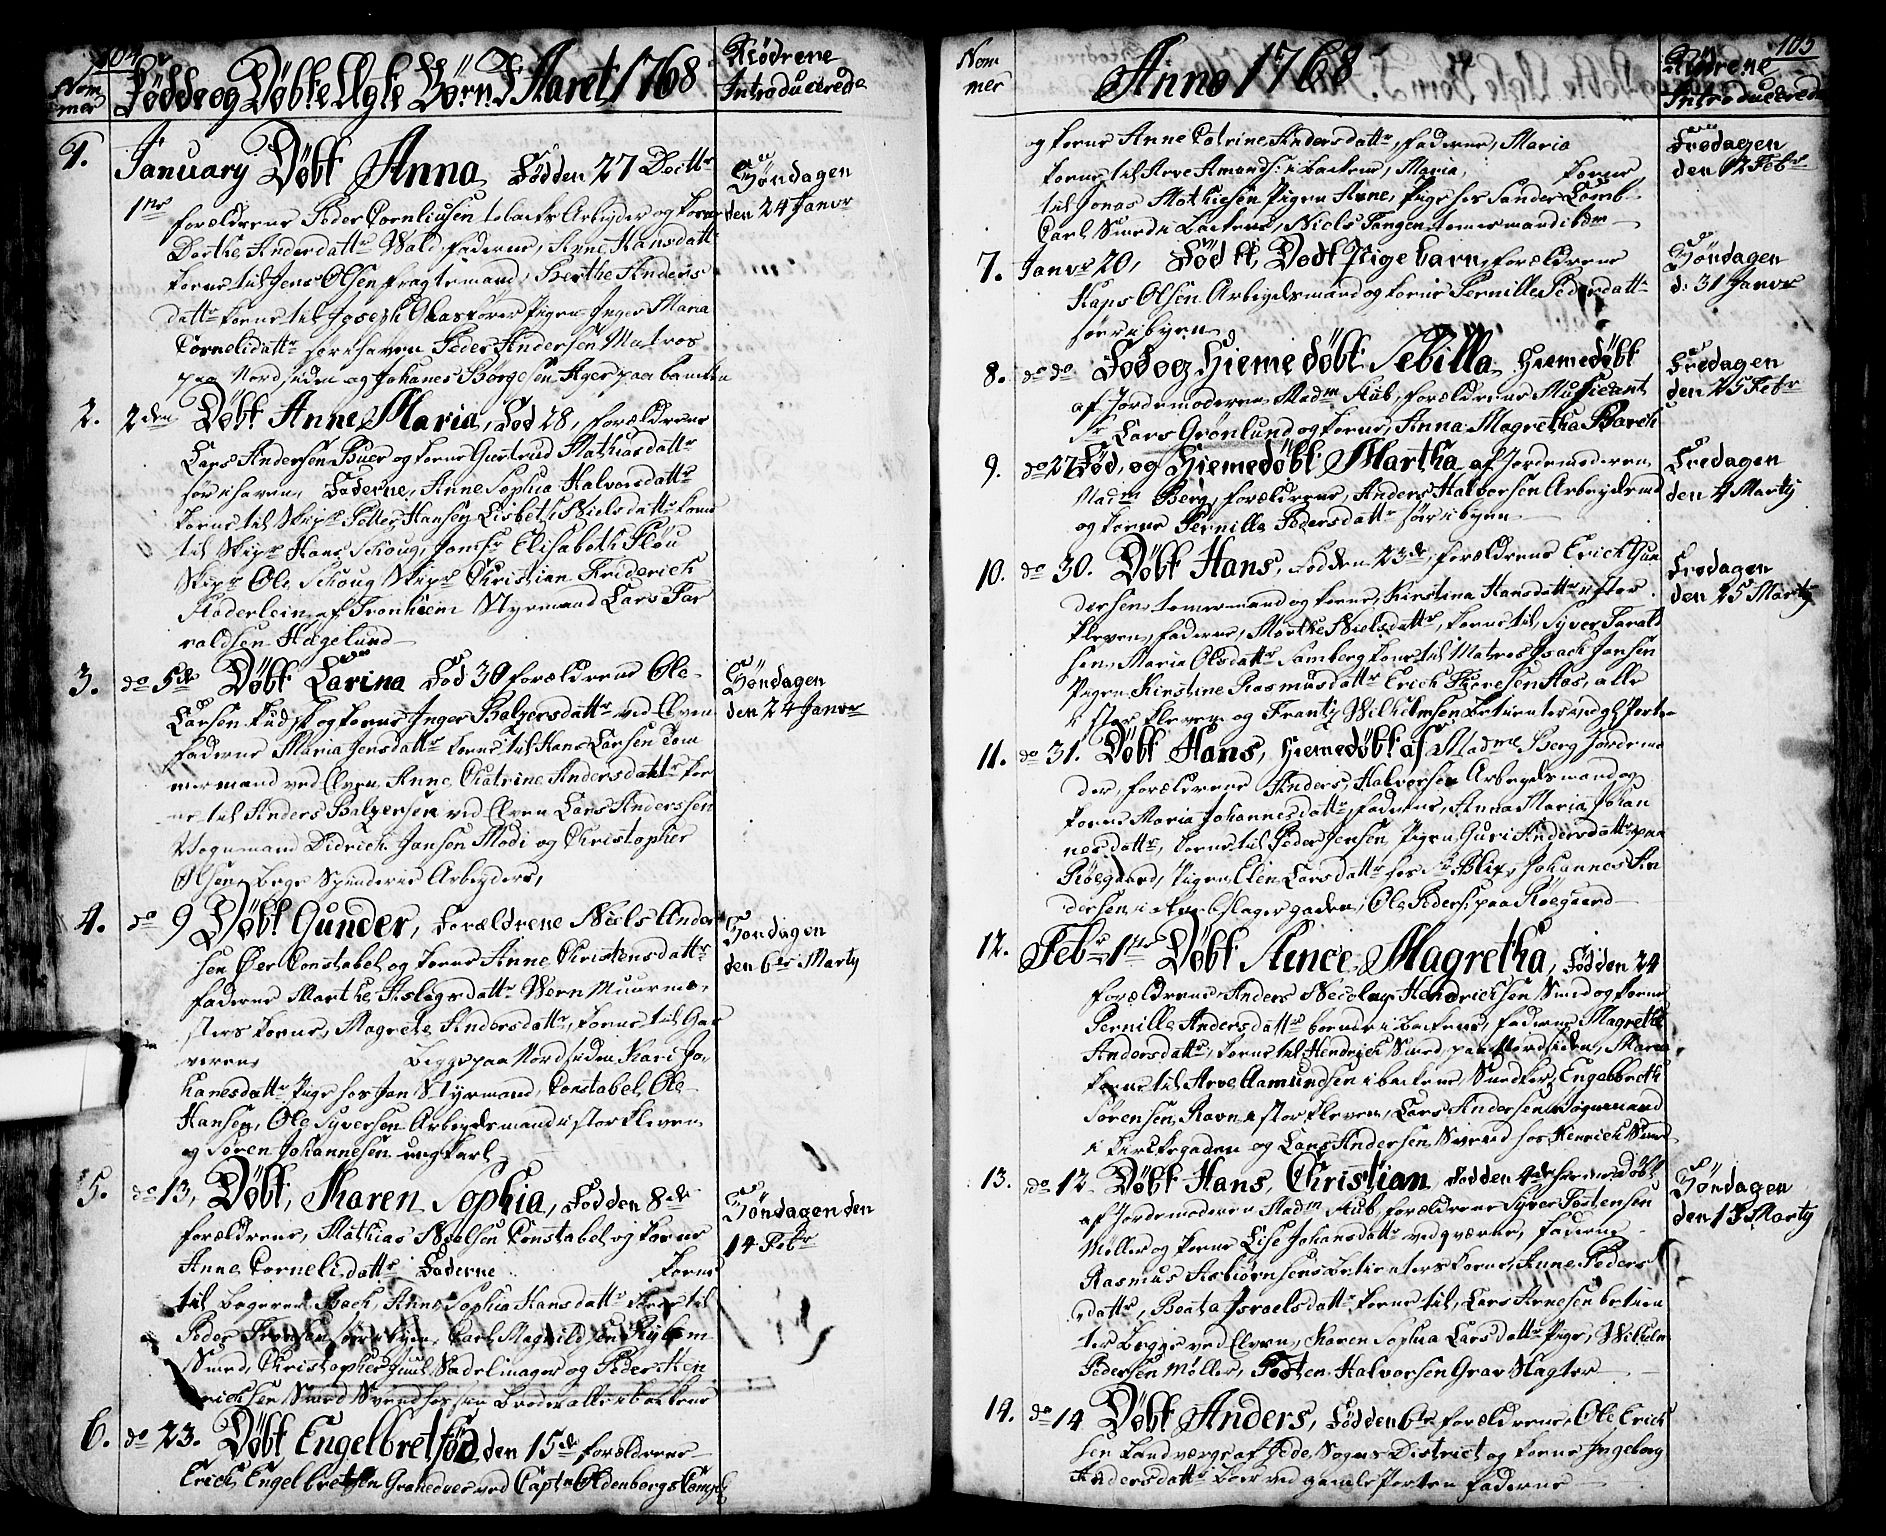 104
Nom
mer
Fødde og Døbte Ægte Børn I Aaret 1768
Mødrene
Introducerede
1. January Døbt Anna, Fød den 27 Decbr
1ste forældrene Peder Cornliusen Arbeyder og kone
Dorthe Andersdattr Wald, fadderne, Anne Hansdattr
kone til Jens Olsen fragtemand, Berthe Anders
dattr kone til Joseph Pigen Inger Maria
Cornelidattr Peder Andersen Matros
paa Nordsiden og Johanes Børgesen Ager paa
Søndagen
den 24 Janvr
2. 2den Døbt Anne Maria, Fød 28, forældrene
Lars Andersen Buer og kone Giertrud Mathiasdattr
Fadderne, Anne Sophia Halvorsdattr
kone til Skipr Petter Hansen, Lisbeth Nielsdattr kone
til Skipr Hans Schoug, Jomfr Elisabeth Plou
Skipr Ole Schoug Skipr Christian Friderich
Haderlein af Tronhiem Styrmand Lars Tar
raldsen Hægelund
3. do 5te Døbt Larina Fød 30 forældrene Ole
Larsen og kone Inger Balzersdattr ved Elven
fadderne Maria Jensdattr kone til Hans Larsen Tom
mermand ved Elven, Anne Chatrine Andersdattr ko
ne til Anders Balzersen ved Elven Lars Anderssen
Vognmand Didrich Jansen Modi og Christopher
Olsen, begge Spinderie Arbeydere,
Søndagen
den 24 Janvr
4. do 9 Døbt Gunder, Forældrene Niels Ander
sen Øer Constabel og kone Anne Christensdattr
fadderne Marthe Aslagsdattr Wern Muurme
sters kone, Magrete Andersdattr, kone til Gar
veren begge paa Nordsiden Kari Jo
hanesdattr Pige hos Jan Styrmand, Constabel Ole
Hansen, Ole Syversen Arbeydsmand i storkleven
og Søren Johannesen ungkarl
Søndagen
den 6te Marty
5. do 13, Døbt, Karen Sophia, Fød den 8de
forældrene, Mathias Neelsen Constabel og kone
Anne Cornelidattr Fadderne kone
til bageren Bach, Anne Sophia Hansdattr kone til
Peder Carl Magnild
Smed, Christopher Juul Sadelmager og Peder Hen
richsen Smed Svend
Søndagen den
14 Febr
6. do 23. Døbt Engelbret, fød den 15de forældrene
Erich Engelbretsen Granedeer ved Capt Oldenborgs Comp
105
Nom
mer
Anno 1768
Mødrene
Introducerede
og kone Anne Catrine Andersdattr, fadderne, Maria
kone til Arve Amunds: i bakken, Maria, kone
til Jonas Mathiesen, Pigen Anne, Pige hos Sander Lamb
Carl Smed i bakken, Niels Tangen tømermand ibdm
Fredagen
den 12 Febr
7. Janvr 20, Fød et Dødt Pigebarn, forældrene
Hans Olsen Arbeydsmand og kone Pernille Pedersdattr
Søndagen
d: 31 Janvr
8. do do Fød og Hiemedøbt Sebilla, Hiemedøbt
af Jordemoderen Madm Aub, forældrene Musicant
Sr Lars Grønlund og kone, Anna Magretha Barch
Fredagen
den 25 Febr
9. do 27 Fød, og Hiemedøbt Martha af Jordemoderen
Madm Berg, forældrene, Anders Halvorsen Arbeydsmd
og kone Pernille Pedersdattr
Fredagen
den 4 Marty
10. do 30. Døbt Hans, Fød den 23de, forældrene Erich Gun
dersen tømermand og kone, Kirstina Hansdattr
kleven, fadderne, Marthe Nielsdattr, kone til, Syver Tarald
sen, Maria Olsdattr Samberg kone til Matros Isach Jansen
Pigen Kirstine Rasmusdattr Erich Aas, alle
i stor kleven og Frantz Wilhelmsen betienter ved gl: Porten
Fredagen
den 25 Marty
11. do 31. Døbt Hans, Hiemedøbt af Madme Berg Jordemo
der, forældrene Anders, Halvorsen Arbeydsmand og
kone Maria Johannesdattr, fadderne, Anna Maria, Johan
nesdattr, kone til Peder Jensen, Pigen Guri Andersdattr paa
Røegaard, Pigen Elen Larsdattr hos Sr Blix, Johannes An
dersen, i gaden, Ole Peders: paa Røegaard
12. Febr 1ste Døbt Magretha, Fød den 24
forældrene Anders Necolay Hendrichsen Smed og kone
Pernille Andersdattr boende i bakken, fadderne Magrethe
Andersdattr, kone til Hendrich Smed, paa Nordsiden, Maria
kone til Arve Aamundsen i bakken, Snedker Engelbreth
Sørensen, Ravn i storkleven, Lars Andersen Vognmand
i kirkegaden og Lars Andersen Svend hos Henrich Smed
13. do 12 Døbt Hans, Christian Fød den 4de hiemedøbt
af Jordemoderen Madm Aub, forældrene Syver Tostensen
Møller og kone Lise Johansdattr ved qværnen, fadderne
Rasmus Asbiørnsens betienters kone, Anne Peders
dattr, Beata Israelsdattr kone til, Lars Arnesen betien
ter begge ved Elven, Karen Sophia Larsdattr Pige, Wilhelm
Pedersen Møller, Tosten Halvorsen Grav Slagter
Søndagen
den 13 Marty
14. do 14 Døbt Anders, Fød den 6te forældrene, Ole Erich
sen Landværge af Jede Sogns District og kone Ingeborg
Andersdattr ved gamle Porten fadderne